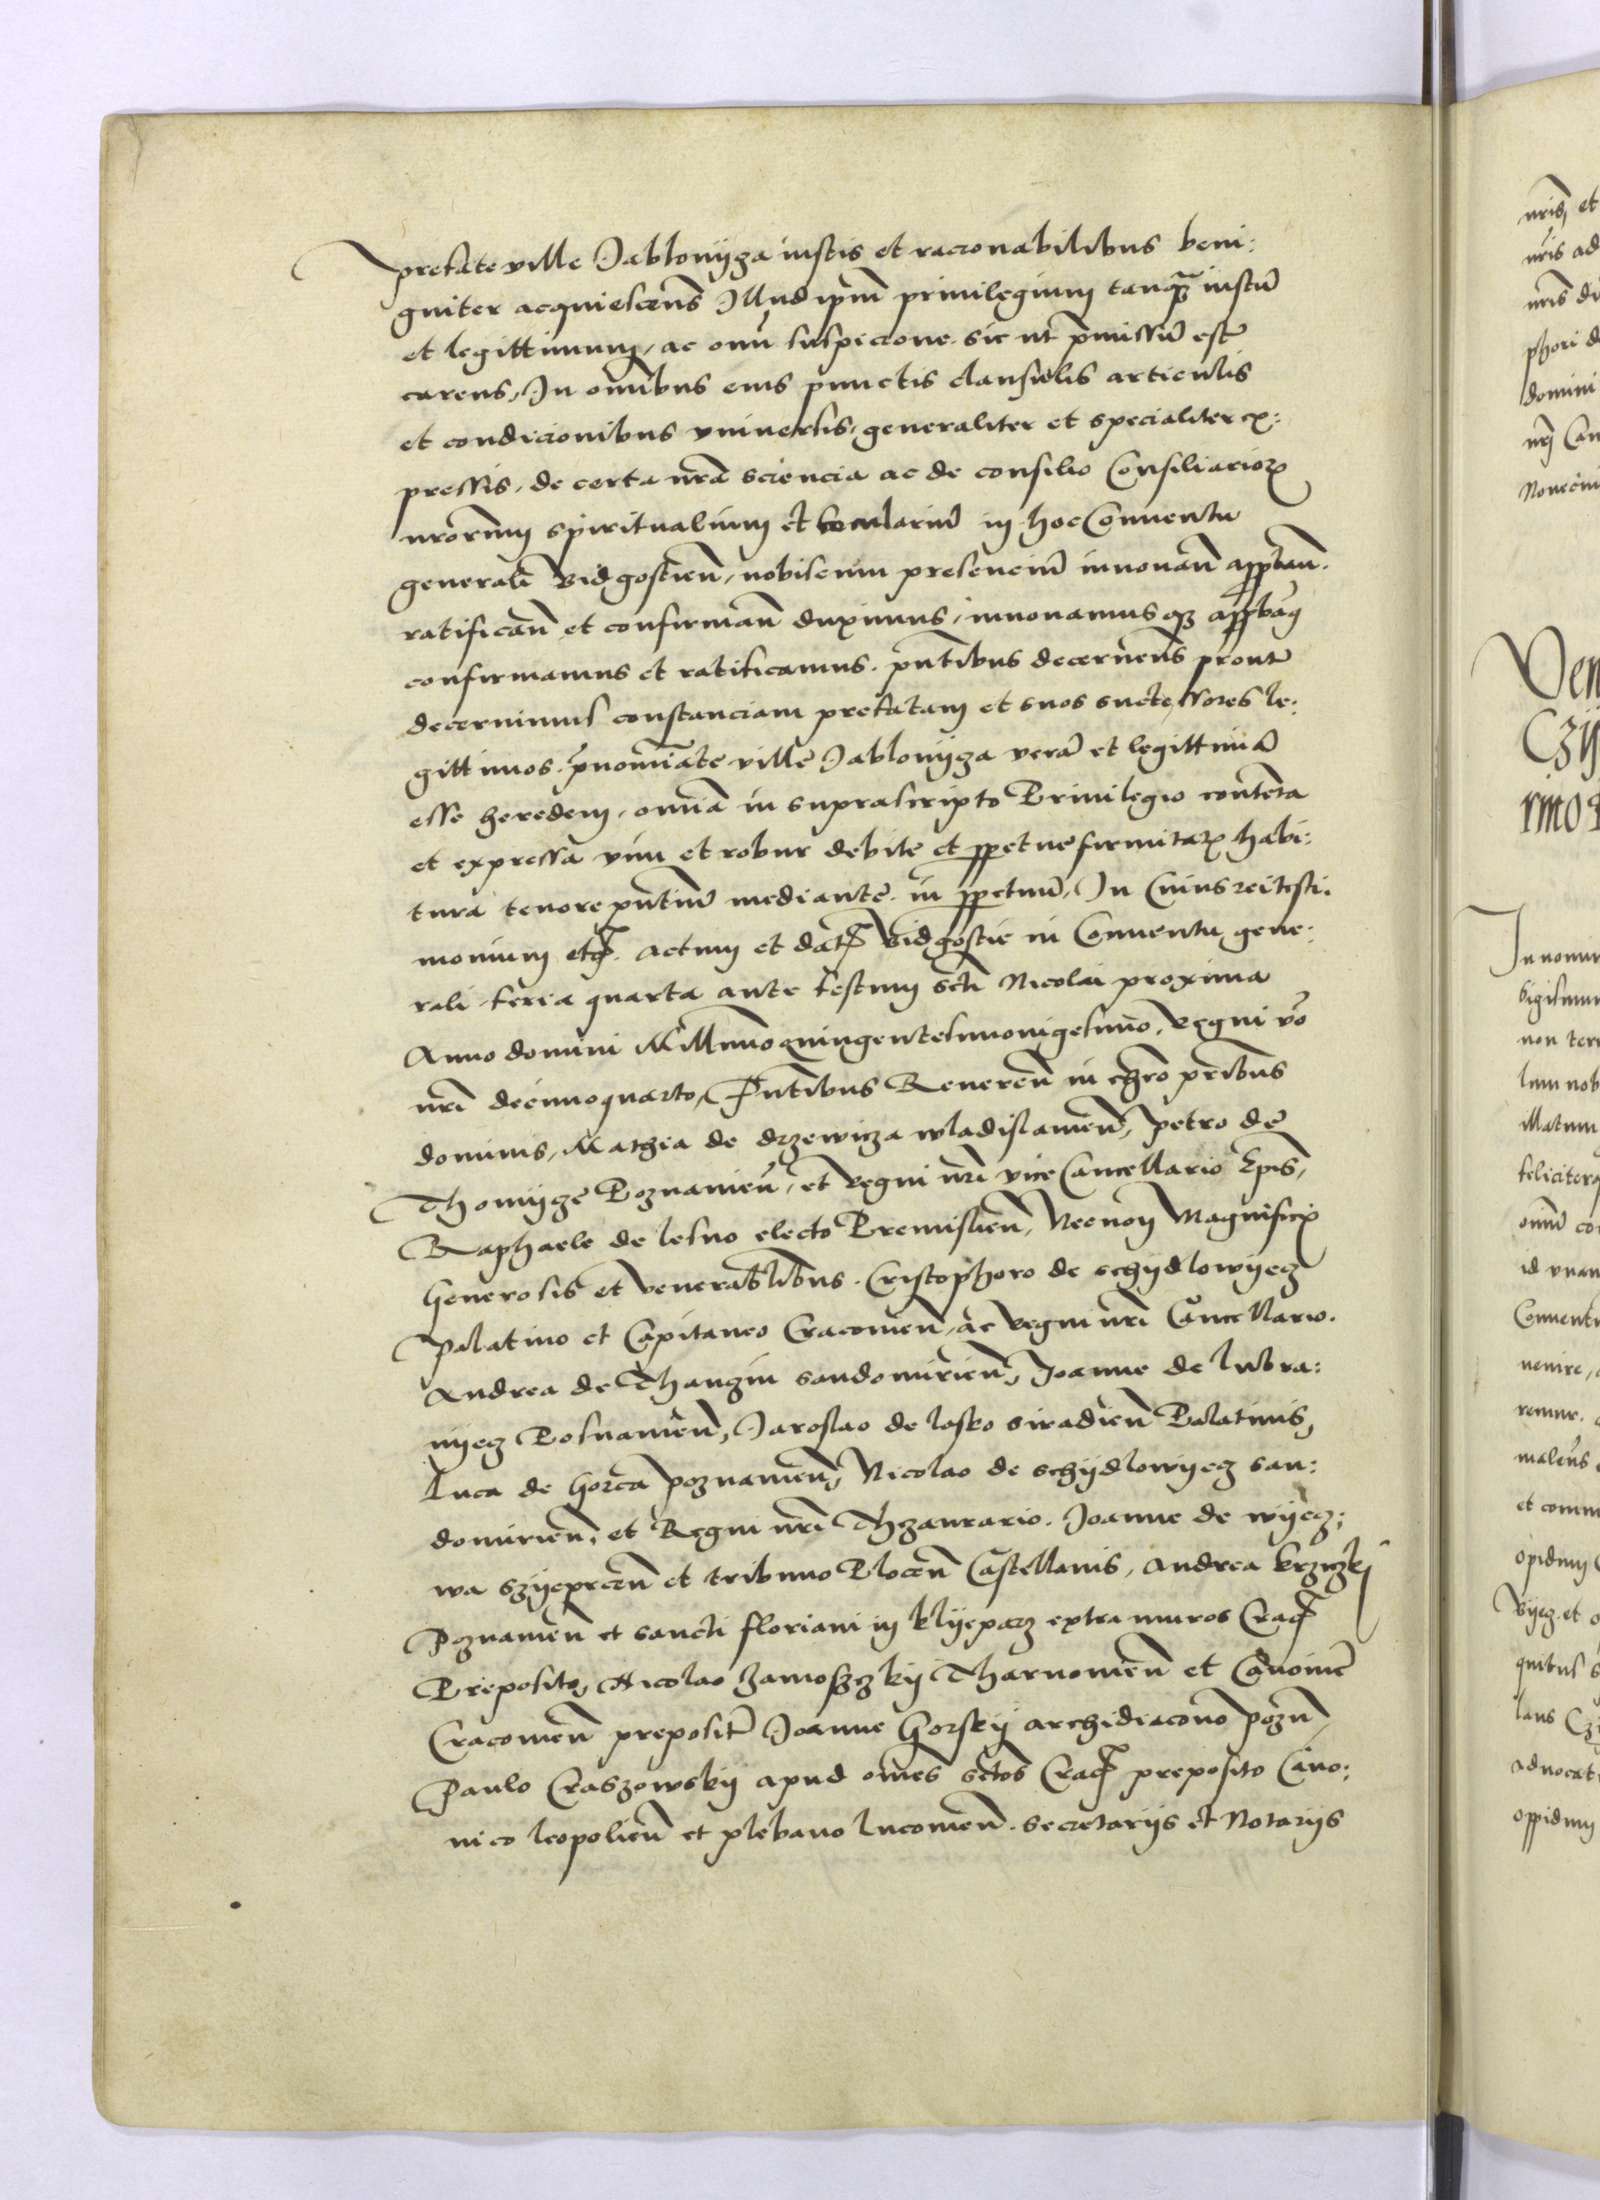 prefate ville Jablonyza iustis et racionabilibus beni:
gniter acquiescens Illud ipm̃ privilegium tanqȝ iustũ
et legittimum, ac omñ suspicione sic ut p̃missũ est
carens, In omĩbus eius punctis clausulis articulis
et condicionibus universis, generaliter et specialiter ex:
pressis, de certa nr̃a sciencia ac de consilio Consiliarioꝝ
nr̃orum spiritualium et seculariũ in hoc Conventu
generali Bidgostien̄, nobiscum presenciũ innovan̄ appban̄.
ratifican̄ et confirman̄ duximus, innovamus qȝ appbaɱ
confirmamus et ratificamus. p̃ntibus decernens prout
decernimus constanciam prefatam et suos successores le:
gittimos. p̃nomĩate ville Jablonyza verã et legittimã
esse heredem, omĩa in suprascripto Privilegio contenta
et expressa vim et robur debite et ꝑpetue firmitatꝭ habi:
tura tenore p̃ntium mediante in ꝑpetuũ, In Cuius rei testi.
monium etc̃. Actum et dat̃ Bidgostie in Conventu gene:
rali feria quarta ante festum scti Nicolai proxima
Anno domini Millmo quingentesimo vigesimo, Regni vo
nr̃i decimoquarto, P̃ntibus Reveren̄ in chr̃o pr̃ibus
dominis, Mathia de drzewicza wladislavien̄, petro de
Thomyze Poznanien̄, et Regni nr̃i viceCancellario Ep̃is,
Raphaele de lesno electo Premislien̄, Necnon Magnificꝭ
Generosis et Venerabilibus. Cristophoro de schydlowyecz
Palatino et Capitaneo Cracovien̄, ac Regni nr̃i Cancellario.
Andrea de Thanzin sandomirien̄, Joanne de lubra:
nyecz Posnanien̄, Jaroslao de lasko siradien̄ Palatinis,
luca de Gorca poznanien̄, Nicolao de schydlowyecz san:
domirien̄, et Regni nr̃i Thzaurario. Joanne de wyecz:
wa szyeprcen̄ et tribuno Plocen̄ Castellanis, Andrea krziczkj
Poznanien̄ et sancti floriani in klyeparz extra muros Crac̃
Preposito, Nicolao Zamoszczky Tharnovien̄ et Canonico
Cracovien̄ preposit̃ Joanne Gorsky archidiacono pozn̄,
Paulo Craszowsky apud om̃es sctos Crac̃ preposito Cano:
nico leopolien̄ et plebano lucovien̄. secretarijs et Notarijs